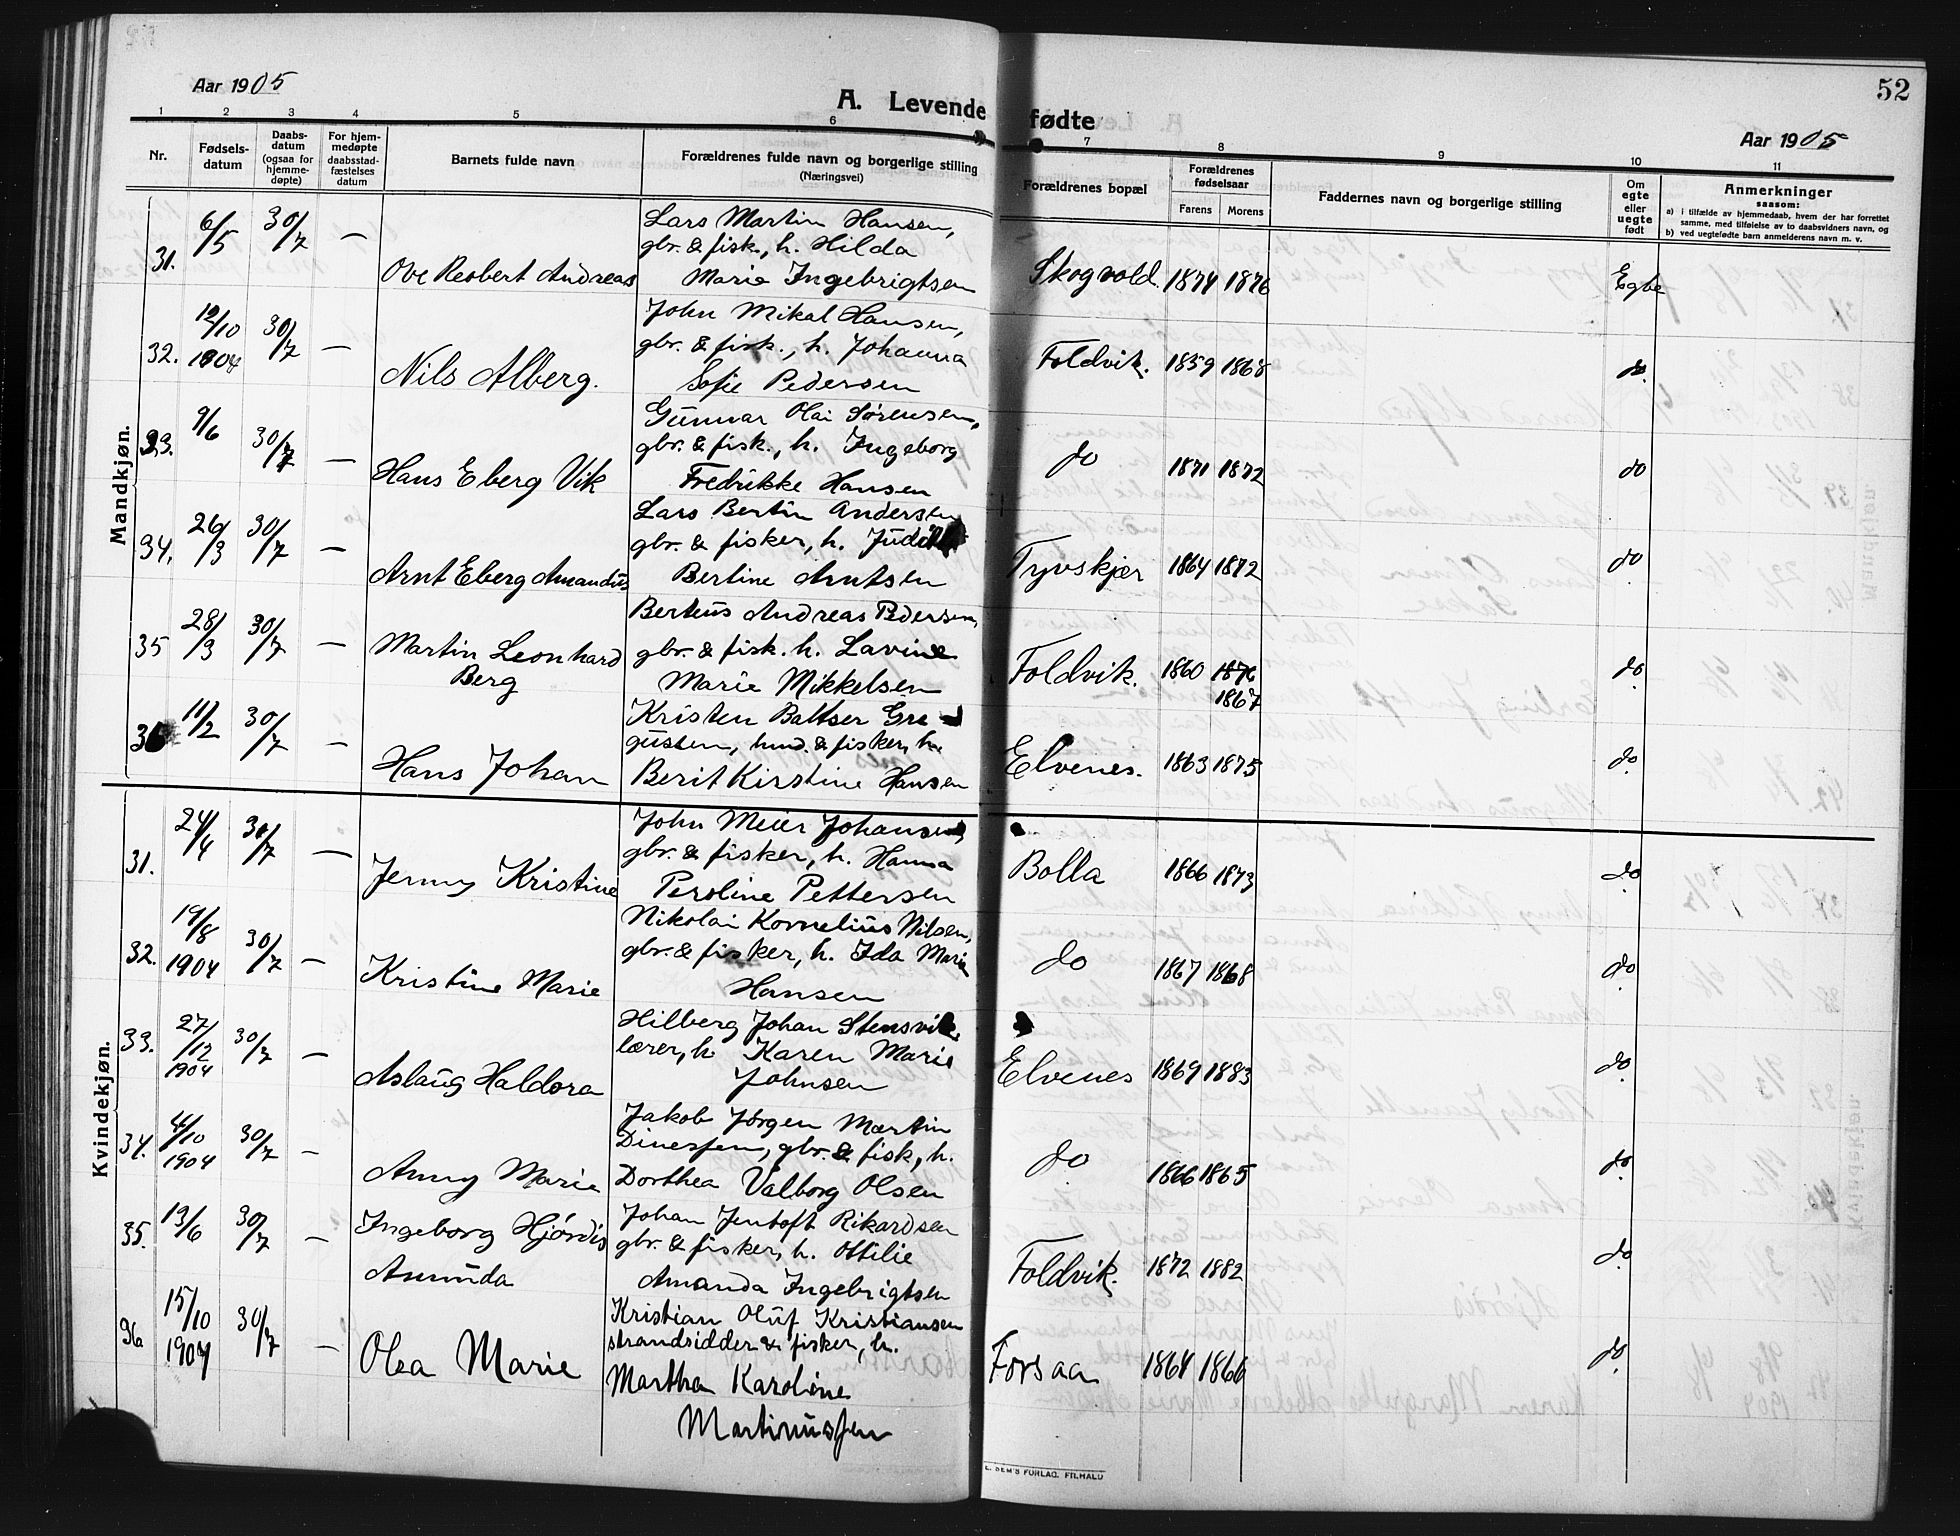 Aar 1905
A. Levende fødte
52
Aar 1905
1 2 3 4 5 6 7 8 9 10 11
Nr.
Fødsels-
datum
Daabs-
datum
(ogsaa for
hjemme-
døpte)
For hjem-
medøpte
daabsstad-
fæstelses
datum
Barnets fulde navn
Forældrenes fulde navn og borgerlige stilling
(Næringsvei)
Forældrenes bopæl
Forældrenes
fødselsaar
Farens Morens
Faddernes navn og borgerlige stilling
Om
egte
eller
uegte
født
Anmerkninger
saasom:
a) i tilfælde av hjemmedaab, hvem der har forrettet
samme, med tilføielse av to daabsvidners navn, og
b) ved uegtefødte barn anmelderens navn m. v.
Mandkjøn.
31. 6/5 30/7 — Ove Robert Andreas
Lars Martin Hansen,
gbr. & fisk., h. Hilda
Marie Ingebrigtsen
Skogvold. 1874 1876 Egte
32. 12/10 1904 30/7 — Nils Alberg.
John Mikal Hansen,
gbr. & fisk., h. Johanna
Sofie Pedersen
Foldvik. 1859 1868 do.
33. 9/6 30/7 — Hans Eberg Vik
Gunnar Olai Sørensen,
gbr. & fisk., h. Ingeborg
Fredrikke Hansen
do 1871 1872 do
34. 26/3 30/7 — Arnt Eberg Amandus
Lars Bertin Andersen
gbr. & fisker, h. Judith
Bertine Arntsen
Tyvskjær 1864 1872 do
35 28/3 30/7 — Martin Leonhard
Berg
Berteus Andreas Pedersen,
gbr. & fisk. h. Lavine
Marie Mikkelsen
Foldvik. 1860 1876 do
1867
36 11/2 30/7 — Hans Johan
Kristen Baltser Gre-
gusten, hmd. & fisker, h.
Berit Kirstine Hansen
Elvenes. 1863 1875 do.
Kvindekjøn.
31. 24/4 30/7 — Jenny Kristine
John Meier Johansen,
gbr. & fisker, h. Hanna
Peroline Pettersen
Bolla 1866 1873 do
32. 19/8 1904 30/7 — Kristine Marie
Nikolai Kornelius Nilsen,
gbr. & fisker, h. Ida Marie
Hansen
do 1867 1868 do
33. 27/12 1904 30/7 — Aslaug Haldora
Hilberg Johan Stensvik,
lærer, h. Karen Marie
Johnsen
Elvenes 1869 1883 do
34. 4/10 1904 30/7 — Anny Marie
Jakob Jørgen Martin
Dinessen, gbr. & fisk, h.
Dorthea Valborg Olsen
do 1866 1865 do
35. 13/6 30/7 — Ingeborg Hjørdis
Amunda
Johan Jentoft Rikardsen
gbr. & fisker, h. Ottilie
Amanda Ingebrigtsen
Foldvik. 1872 1882 do
36 15/10 1904 30/7 — Olea Marie
Kristian Oluf Kristiansen
strandsidder & fisker, h.
Martha Karoline
Martinussen
Forsaa 1864 1866 do.
E. SEM'S FORLAG. FR.HALD